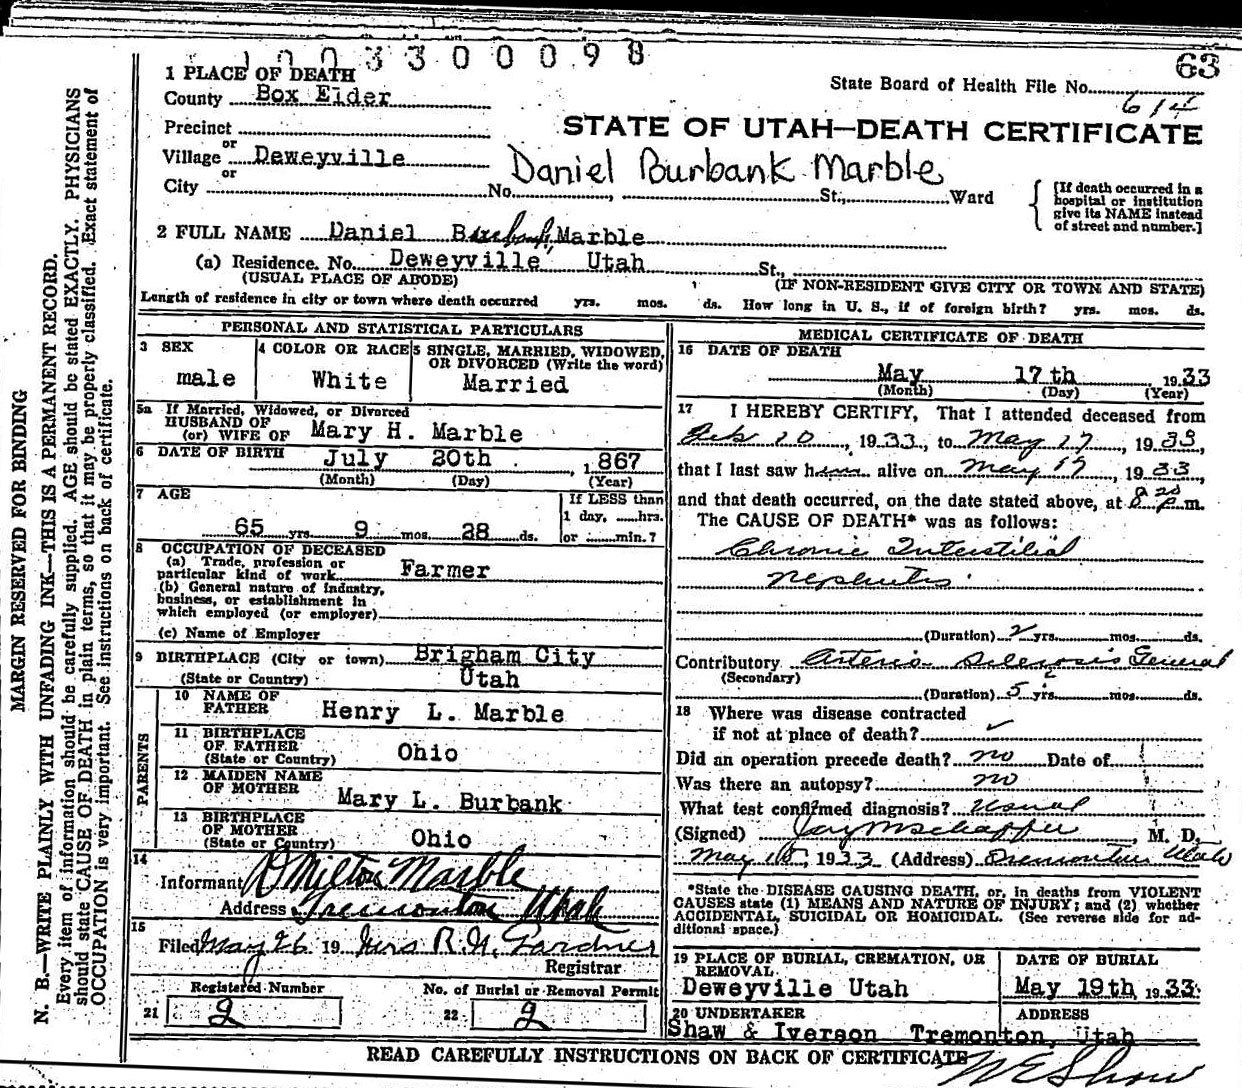 1003300098
63
1 PLACE OF DEATH
State Board of Health File No. 614
County Box Elder
STATE OF UTAH—DEATH CERTIFICATE
Precinct
or
Village Deweyville
Daniel Burbank Marble
or
City No. , St., Ward
[If death occurred in a hospital or institution give its NAME instead of street and number.]
2 FULL NAME Daniel Burbank Marble
(a) Residence. No. Deweyville Utah St.,
(USUAL PLACE OF ABODE) (IF NON-RESIDENT GIVE CITY OR TOWN AND STATE)
Length of residence in city or town where death occurred yrs. mos. ds. How long in U. S., if of foreign birth? yrs. mos. ds.
PERSONAL AND STATISTICAL PARTICULARS
3 SEX
male
4 COLOR OR RACE
White
5 SINGLE, MARRIED, WIDOWED,
OR DIVORCED (Write the word)
Married
5a If Married, Widowed, or Divorced
HUSBAND OF
(or) WIFE OF Mary H. Marble
6 DATE OF BIRTH July 20th , 1867
(Month) (Day) (Year)
7 AGE
65 yrs. 9 mos. 28 ds.
If LESS than
1 day, hrs.
or min.?
8 OCCUPATION OF DECEASED
(a) Trade, profession or
particular kind of work Farmer
(b) General nature of industry,
business, or establishment in
which employed (or employer)
(c) Name of Employer
9 BIRTHPLACE (City or town) Brigham City
(State or Country) Utah
PARENTS
10 NAME OF
FATHER Henry L. Marble
11 BIRTHPLACE
OF FATHER
(State or Country) Ohio
12 MAIDEN NAME
OF MOTHER Mary L. Burbank
13 BIRTHPLACE
OF MOTHER
(State or Country) Ohio
14
Informant D Milton Marble
Address Tremonton Utah
15
Filed May 26 19 Mrs R. H. Gardner
Registrar
Registered Number
21 2
No. of Burial or Removal Permit
22 2
MEDICAL CERTIFICATE OF DEATH
16 DATE OF DEATH
May 17th , 1933
(Month) (Day) (Year)
17 I HEREBY CERTIFY, That I attended deceased from
Feb 20, 1933, to May 17, 1933,
that I last saw him alive on May 17, 1933,
and that death occurred, on the date stated above, at 8 20 p. m.
The CAUSE OF DEATH* was as follows:
Chronic Interstitial
Nephritis
(Duration) 2 yrs. mos. ds.
Contributory Arterio Sclerosis General
(Secondary)
(Duration) 5 yrs. mos. ds.
18 Where was disease contracted
if not at place of death?
Did an operation precede death? no Date of
Was there an autopsy? no
What test confirmed diagnosis? Usual
(Signed) Jay M Schaffer, M. D.
May 18, 1933 (Address) Tremonton Utah
*State the DISEASE CAUSING DEATH, or, in deaths from VIOLENT
CAUSES state (1) MEANS AND NATURE OF INJURY; and (2) whether
ACCIDENTAL, SUICIDAL OR HOMICIDAL. (See reverse side for ad-
ditional space.)
19 PLACE OF BURIAL, CREMATION, OR
REMOVAL
Deweyville Utah
DATE OF BURIAL
May 19th, 1933
20 UNDERTAKER
ADDRESS
Shaw & Iverson Tremonton, Utah
READ CAREFULLY INSTRUCTIONS ON BACK OF CERTIFICATE
W E Shaw
MARGIN RESERVED FOR BINDING
N. B.—WRITE PLAINLY WITH UNFADING INK—THIS IS A PERMANENT RECORD.
Every item of information should be carefully supplied. AGE should be stated EXACTLY. PHYSICIANS
should state CAUSE OF DEATH in plain terms, so that it may be properly classified. Exact statement of
OCCUPATION is very important. See instructions on back of certificate.